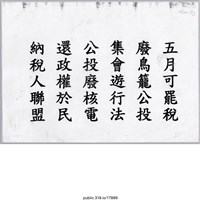 五月可罷稅
廢鳥籠公投
集會遊行法
公投廢核電
還政權於民
納稅人聯盟
public.318.io/17899